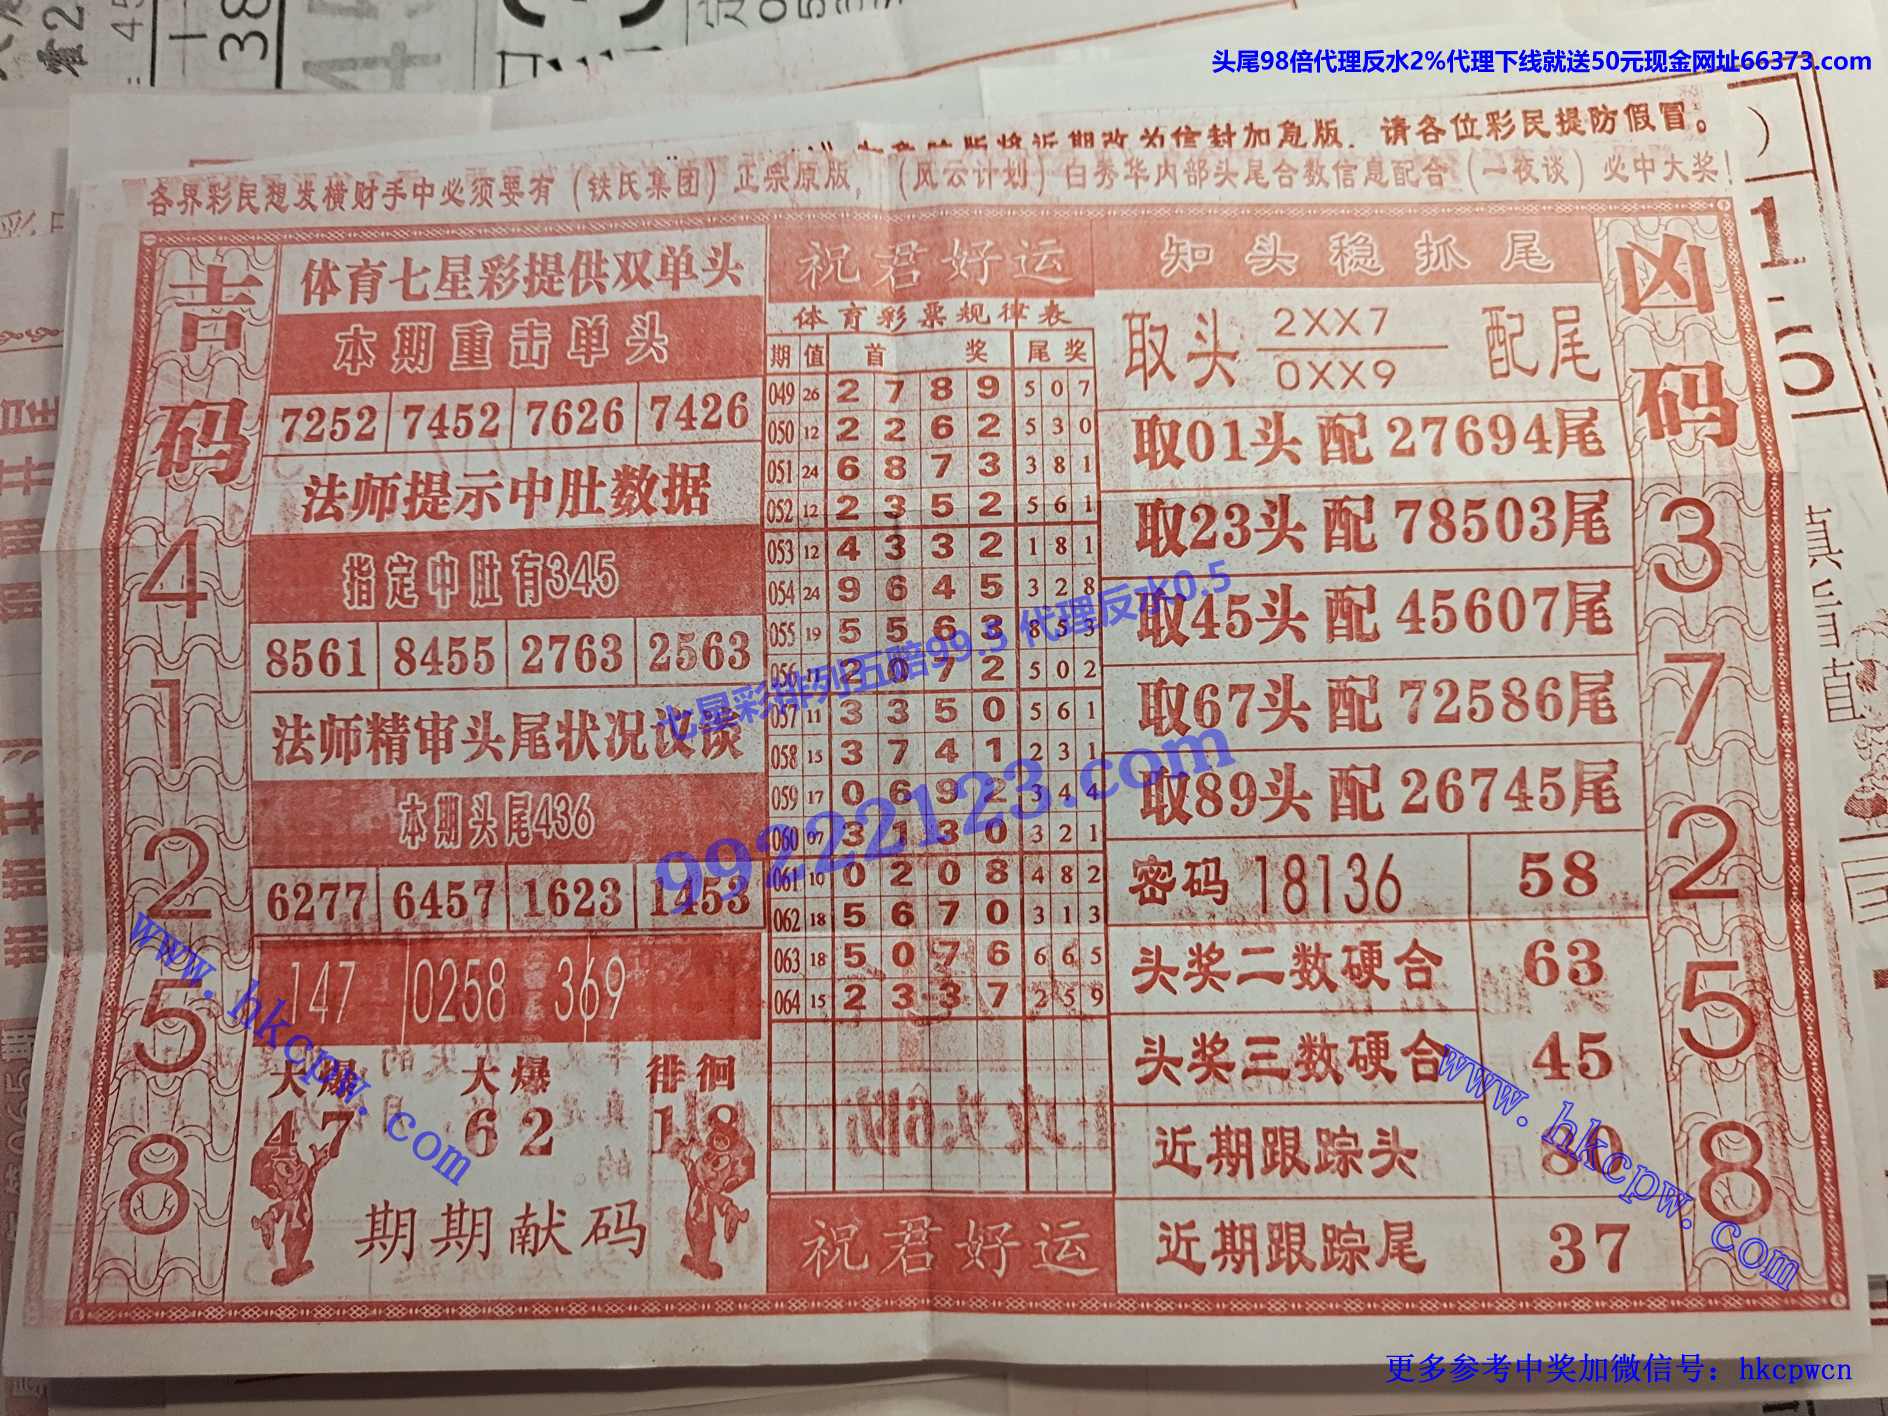 头尾98倍代理反水2%代理下线就送50元现金网址66373.com
版将近期改为信封加急版，请各位彩民提防假冒。
各界彩民想发横财手中必须要有（铁氏集团）正宗原版，（风云计划）白秀华内部头尾合数信息配合（一夜谈）必中大奖！
吉码
4
1
2
5
8
体育七星彩提供双单头
本期重击单头
7252 7452 7626 7426
法师提示中肚数据
指定中肚有345
8561 8455 2763 2563
法师精审头尾状况议谈
本期头尾436
6277 6457 1623 1453
147 0258 369
大爆 大爆 徘徊
47 62 18
期期献码
祝君好运
体育彩票规律表
期 值 首 奖 尾奖
049 26 2 7 8 9 5 0 7
050 12 2 2 6 2 5 3 0
051 24 6 8 7 3 3 8 1
052 12 2 3 5 2 5 6 1
053 12 4 3 3 2 1 8 1
054 24 9 6 4 5 3 2 8
055 19 5 5 6 3 8 5 3
056 11 2 0 7 2 5 0 2
057 11 3 3 5 0 5 6 1
058 15 3 7 4 1 2 3 1
059 17 0 6 9 2 3 4 4
060 07 3 1 3 0 3 2 1
061 10 0 2 0 8 4 8 2
062 18 5 6 7 0 3 1 3
063 18 5 0 7 6 6 6 5
064 15 2 3 3 7 2 5 9
祝君好运
知头稳抓尾
取头 2XX7 配尾
0XX9
取01头 配 27694尾
取23头 配 78503尾
取45头 配 45607尾
取67头 配 72586尾
取89头 配 26745尾
密码 18136 58
头奖二数硬合 63
头奖三数硬合 45
近期跟踪头 80
近期跟踪尾 37
凶码
3
7
2
5
8
七星彩排列五赔99.5 代理反水0.5
99222123.com
www.hkcpw.com
www.hkcpw.com
更多参考中奖加微信号：hkcpwcn